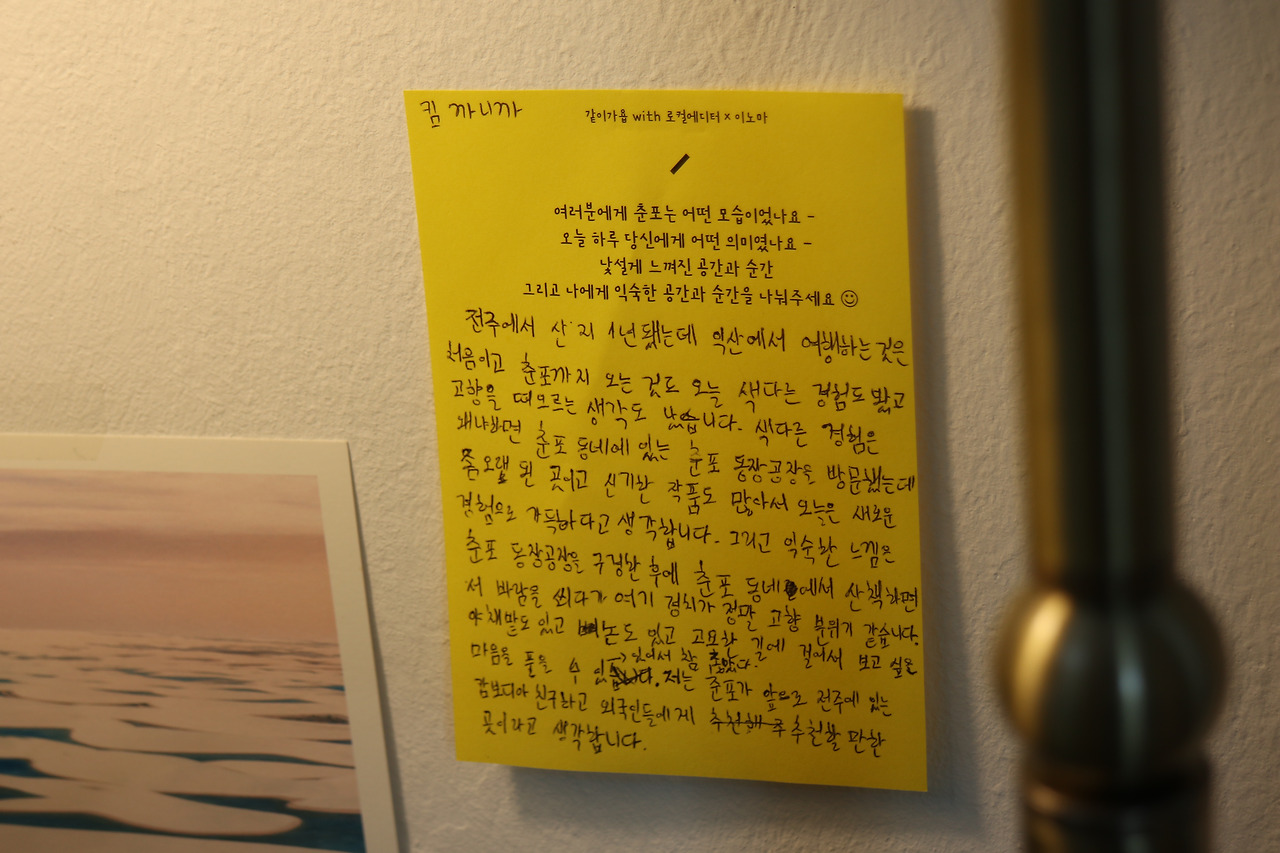 킴 까니까
같이가욥 with 로컬에디터 x 이노마
여러분에게 춘포는 어떤 모습이었나요 -
오늘 하루 당신에게 어떤 의미였나요 -
낯설게 느껴진 공간과 순간
그리고 나에게 익숙한 공간과 순간을 나눠주세요 ☺
전주에서 산 지 1년 됐는데 익산에서 여행하는 것은
처음이고 춘포까지 오는 것도 오늘 색다른 경험도 봤고
고향을 떠오르는 생각도 났습니다. 색다른 경험은
왜냐하면 춘포 동네에 있는 춘포 동장공장을 방문했는데
좀 오랩 된 곳이고 신기한 작품도 많아서 오늘은 새로운
경험으로 가득하다고 생각합니다. 그리고 익숙한 느낌은
춘포 동장공장을 구경한 후에 춘포 동네에서 산책하면
서 바람을 쐬다가 여기 경치가 정말 고향 분위기 같습니다.
야채밭도 있고 논도 있고 고요한 길에 걸어서 보고 싶은
마음을 풀을 수 있→있어서 참 좋았다. 저는 춘포가 앞으로 전주에 있는
캄보디아 친구하고 외국인들에게 추천할 만한
곳이라고 생각합니다.